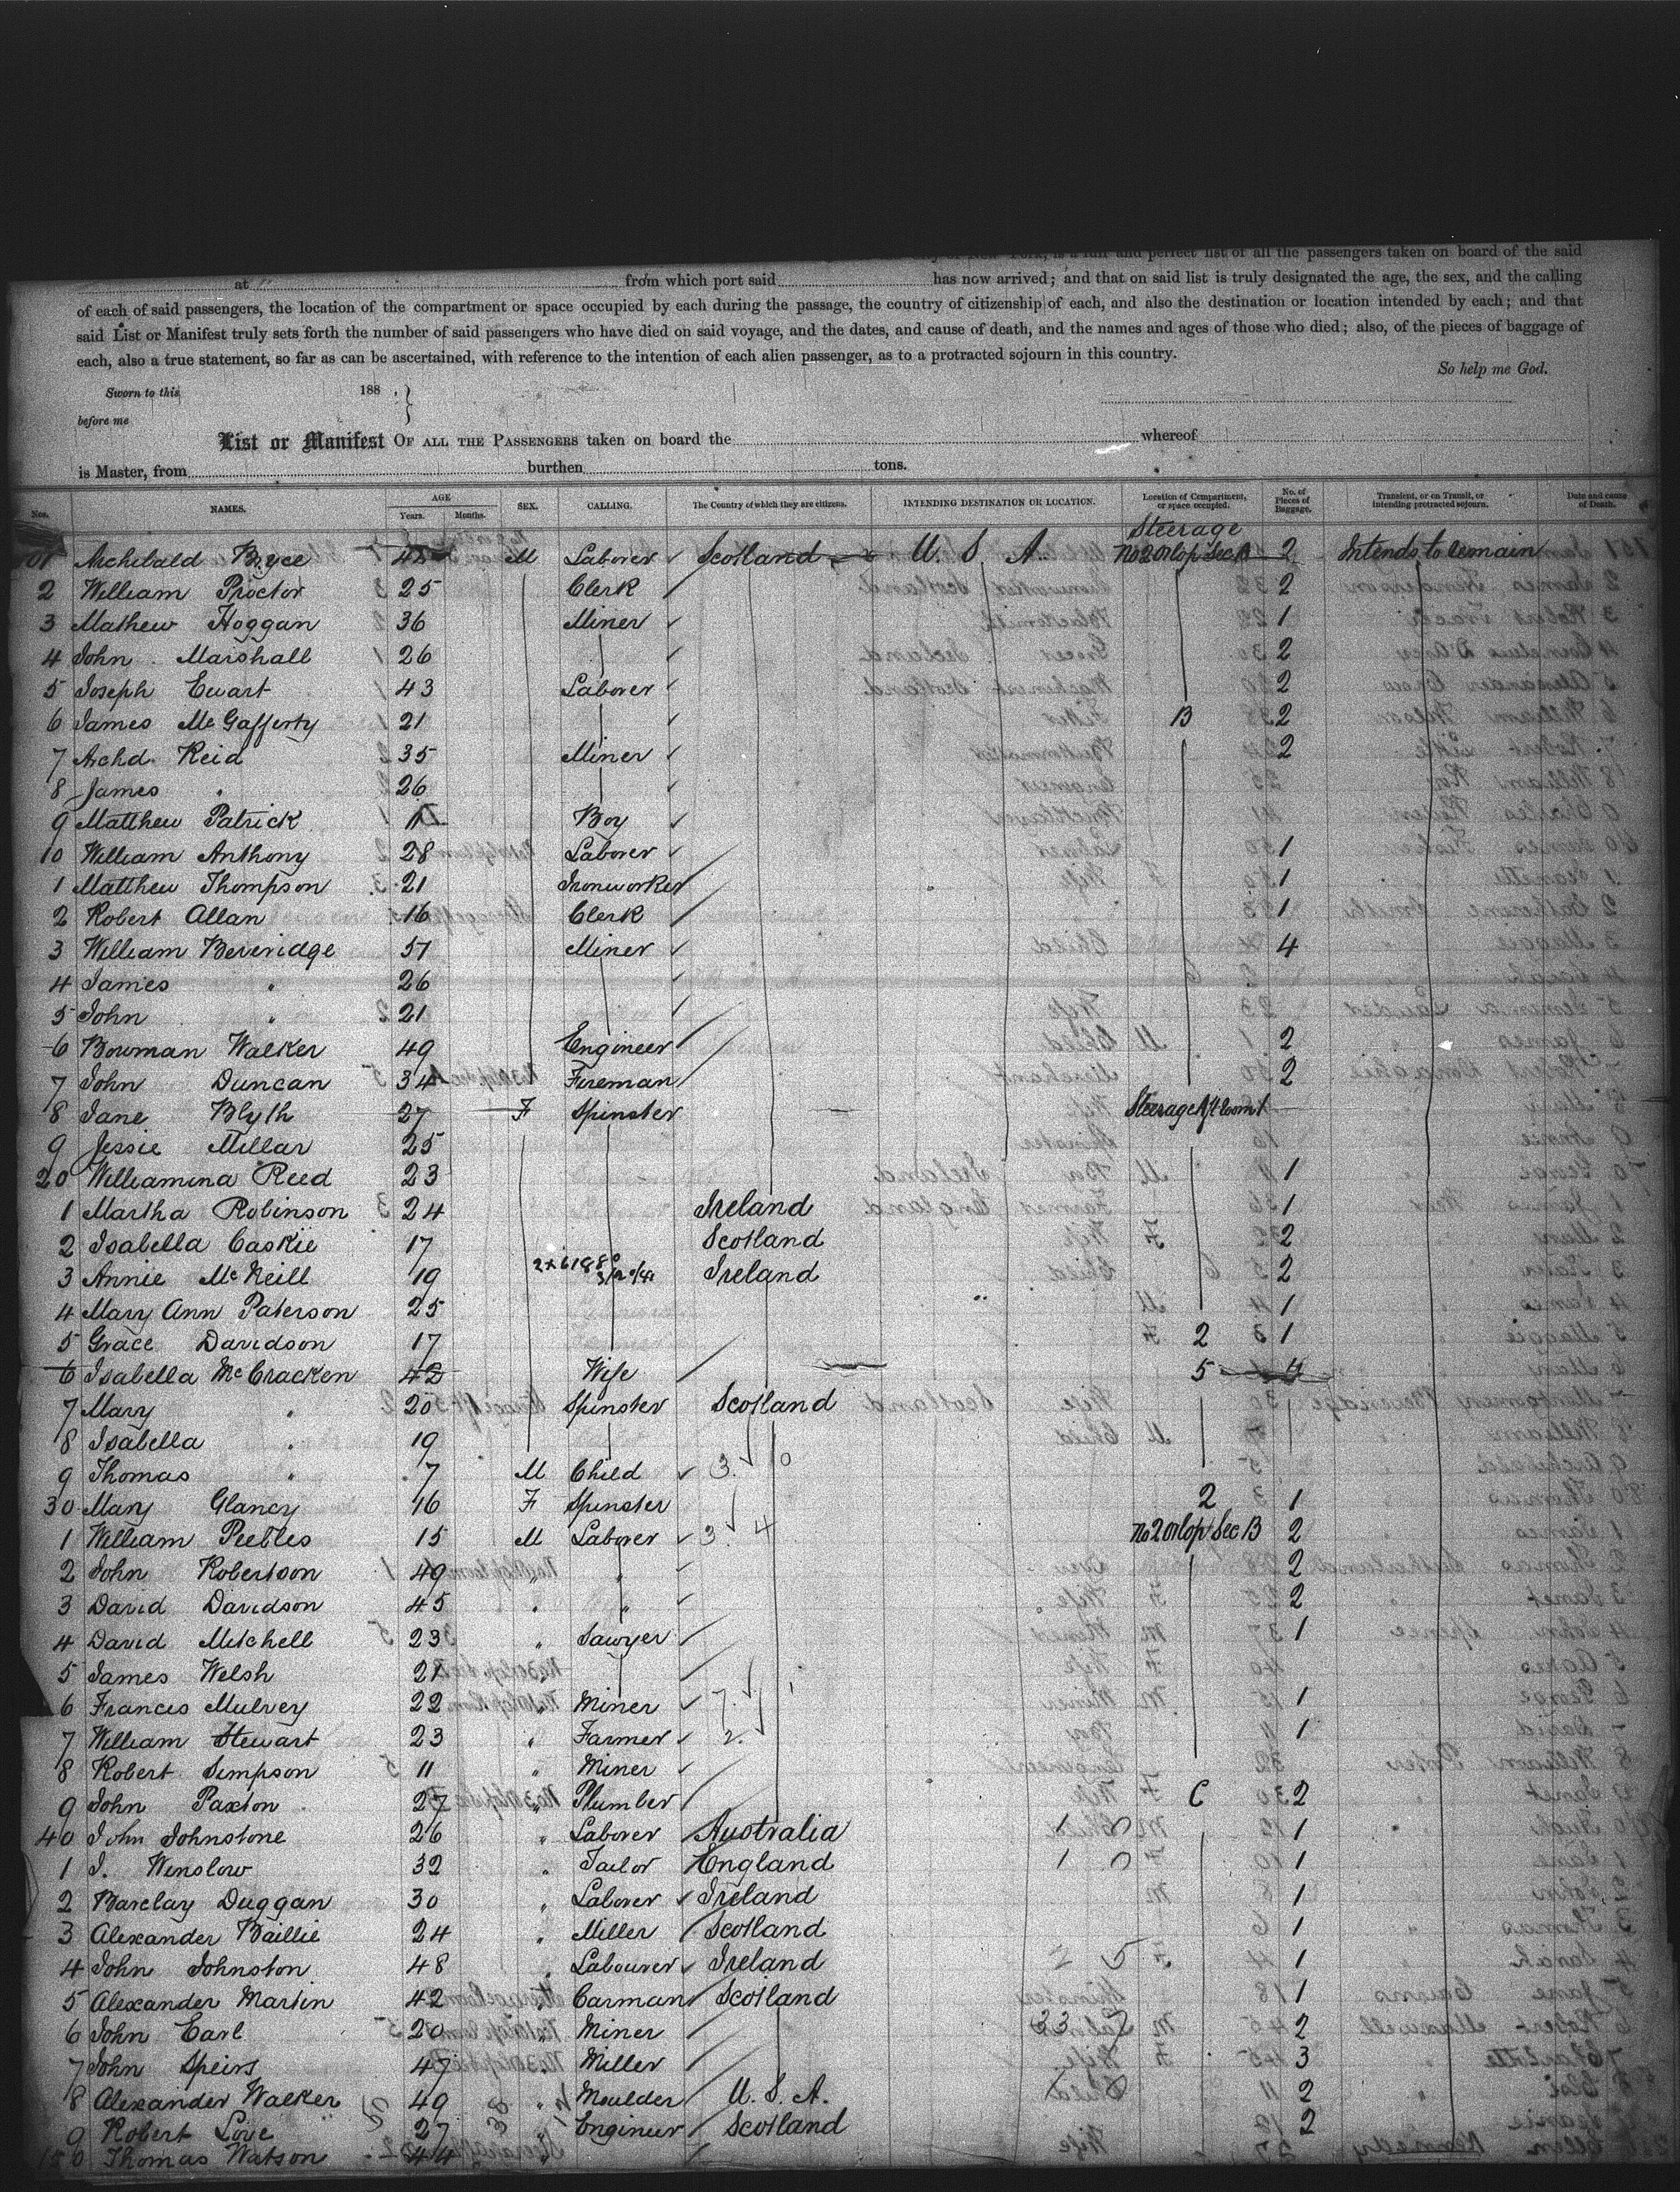 is a full and perfect list of all the passengers taken on board of the said
at from which port said has now arrived; and that on said list is truly designated the age, the sex, and the calling
of each of said passengers, the location of the compartment or space occupied by each during the passage, the country of citizenship of each, and also the destination or location intended by each; and that
said List or Manifest truly sets forth the number of said passengers who have died on said voyage, and the dates, and cause of death, and the names and ages of those who died; also, of the pieces of baggage of
each, also a true statement, so far as can be ascertained, with reference to the intention of each alien passenger, as to a protracted sojourn in this country.
So help me God.
Sworn to this 188 .
before me
List or Manifest OF ALL THE PASSENGERS taken on board the whereof
is Master, from burthen tons.
Nos. NAMES. AGE Years. Months. SEX. CALLING. The Country of which they are citizens. INTENDING DESTINATION OR LOCATION. Location of Compartment, or space occupied. No. of Pieces of Baggage. Transient, or on Transit, or intending protracted sojourn. Date and cause of Death.
Steerage
01 Archibald Bryce 42 M Laborer Scotland U. S. A. No 2 Orlop Sec B 2 Intends to remain
2 William Proctor 25 Clerk 2
3 Mathew Hoggan 36 Miner 1
4 John Marshall 26 2
5 Joseph Ewart 43 Laborer 2
6 James McGafferty 21 B 2
7 Archd. Reid 35 Miner 2
8 James " 26
9 Matthew Patrick Boy
10 William Anthony 28 Laborer 1
1 Matthew Thompson 21 Ironworker 1
2 Robert Allan 16 Clerk 1
3 William Beveridge 51 Miner 4
4 James " 26
5 John " 21
6 Bowman Walker 49 Engineer 2
7 John Duncan 34 Fireman 2
8 Jane Blyth 27 F Spinster Steerage Aft Room 1
9 Jessie Millar 25
20 Williamina Reed 23 1
1 Martha Robinson 24 Ireland 1
2 Isabella Caskie 17 Scotland 2
3 Annie McNeill 19 Ireland 2
4 Mary Ann Paterson 25 1
5 Grace Davidson 17 2 1
6 Isabella McCracken 42 Wife 5 4
7 Mary " 20 Spinster Scotland
8 Isabella " 19
9 Thomas " 7 M Child
30 Mary Glancy 16 F Spinster 2 1
1 William Peebles 15 M Laborer No 2 Orlop Sec B 2
2 John Robertson 49 " " 2
3 David Davidson 45 " " 2
4 David Mitchell 23 " Sawyer 1
5 James Welsh 21
6 Francis Mulvey 22 Miner 1
7 William Stewart 23 " Farmer 1
8 Robert Simpson 11 " Miner
9 John Paxton 27 " Plumber C 2
40 John Johnstone 26 " Laborer Australia 1
1 J. Winslow 32 " Tailor England 1
2 Barclay Duggan 30 " Laborer Ireland 1
3 Alexander Baillie 24 " Miller Scotland 1
4 John Johnston 48 " Labourer Ireland 1
5 Alexander Martin 42 " Carman Scotland 1
6 John Earl 20 " Miner 2
7 John Speirs 47 " Miller 3
8 Alexander Walker 49 " Moulder U. S. A. 2
9 Robert Love 27 " Engineer Scotland 2
150 Thomas Watson 44 "